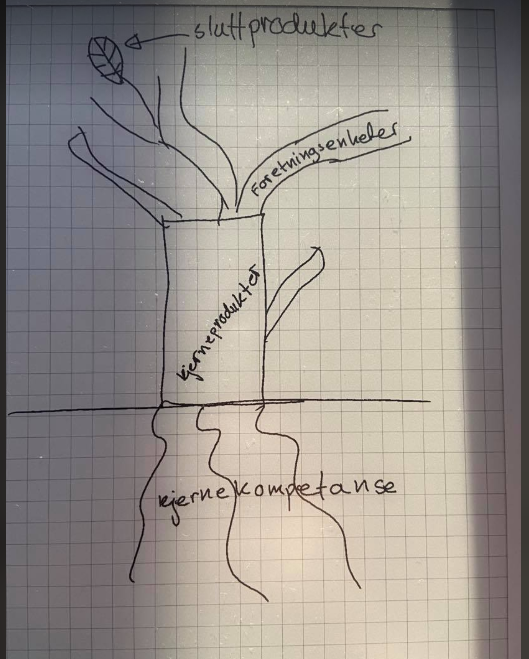 sluttprodukter
Foretningsenheter
kjerneprodukter
kjernekompetanse